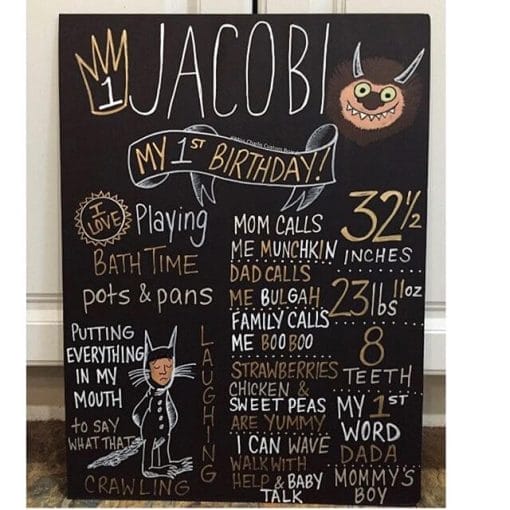 1
JACOBI
MY 1ST BIRTHDAY!
I LOVE
Playing
BATH TIME
pots & pans
PUTTING
EVERYTHING
IN MY
MOUTH
to SAY
WHAT THAT
CRAWLING
LAUGHING
MOM CALLS
ME MUNCHKIN
DAD CALLS
ME BULGAH
FAMILY CALLS
ME BOO BOO
STRAWBERRIES
CHICKEN &
SWEET PEAS
ARE YUMMY
I CAN WAVE
WALK WITH
HELP & BABY
TALK
32 1/2
INCHES
23lbs 11oz
8
TEETH
MY 1ST
WORD
DADA
MOMMY'S
BOY